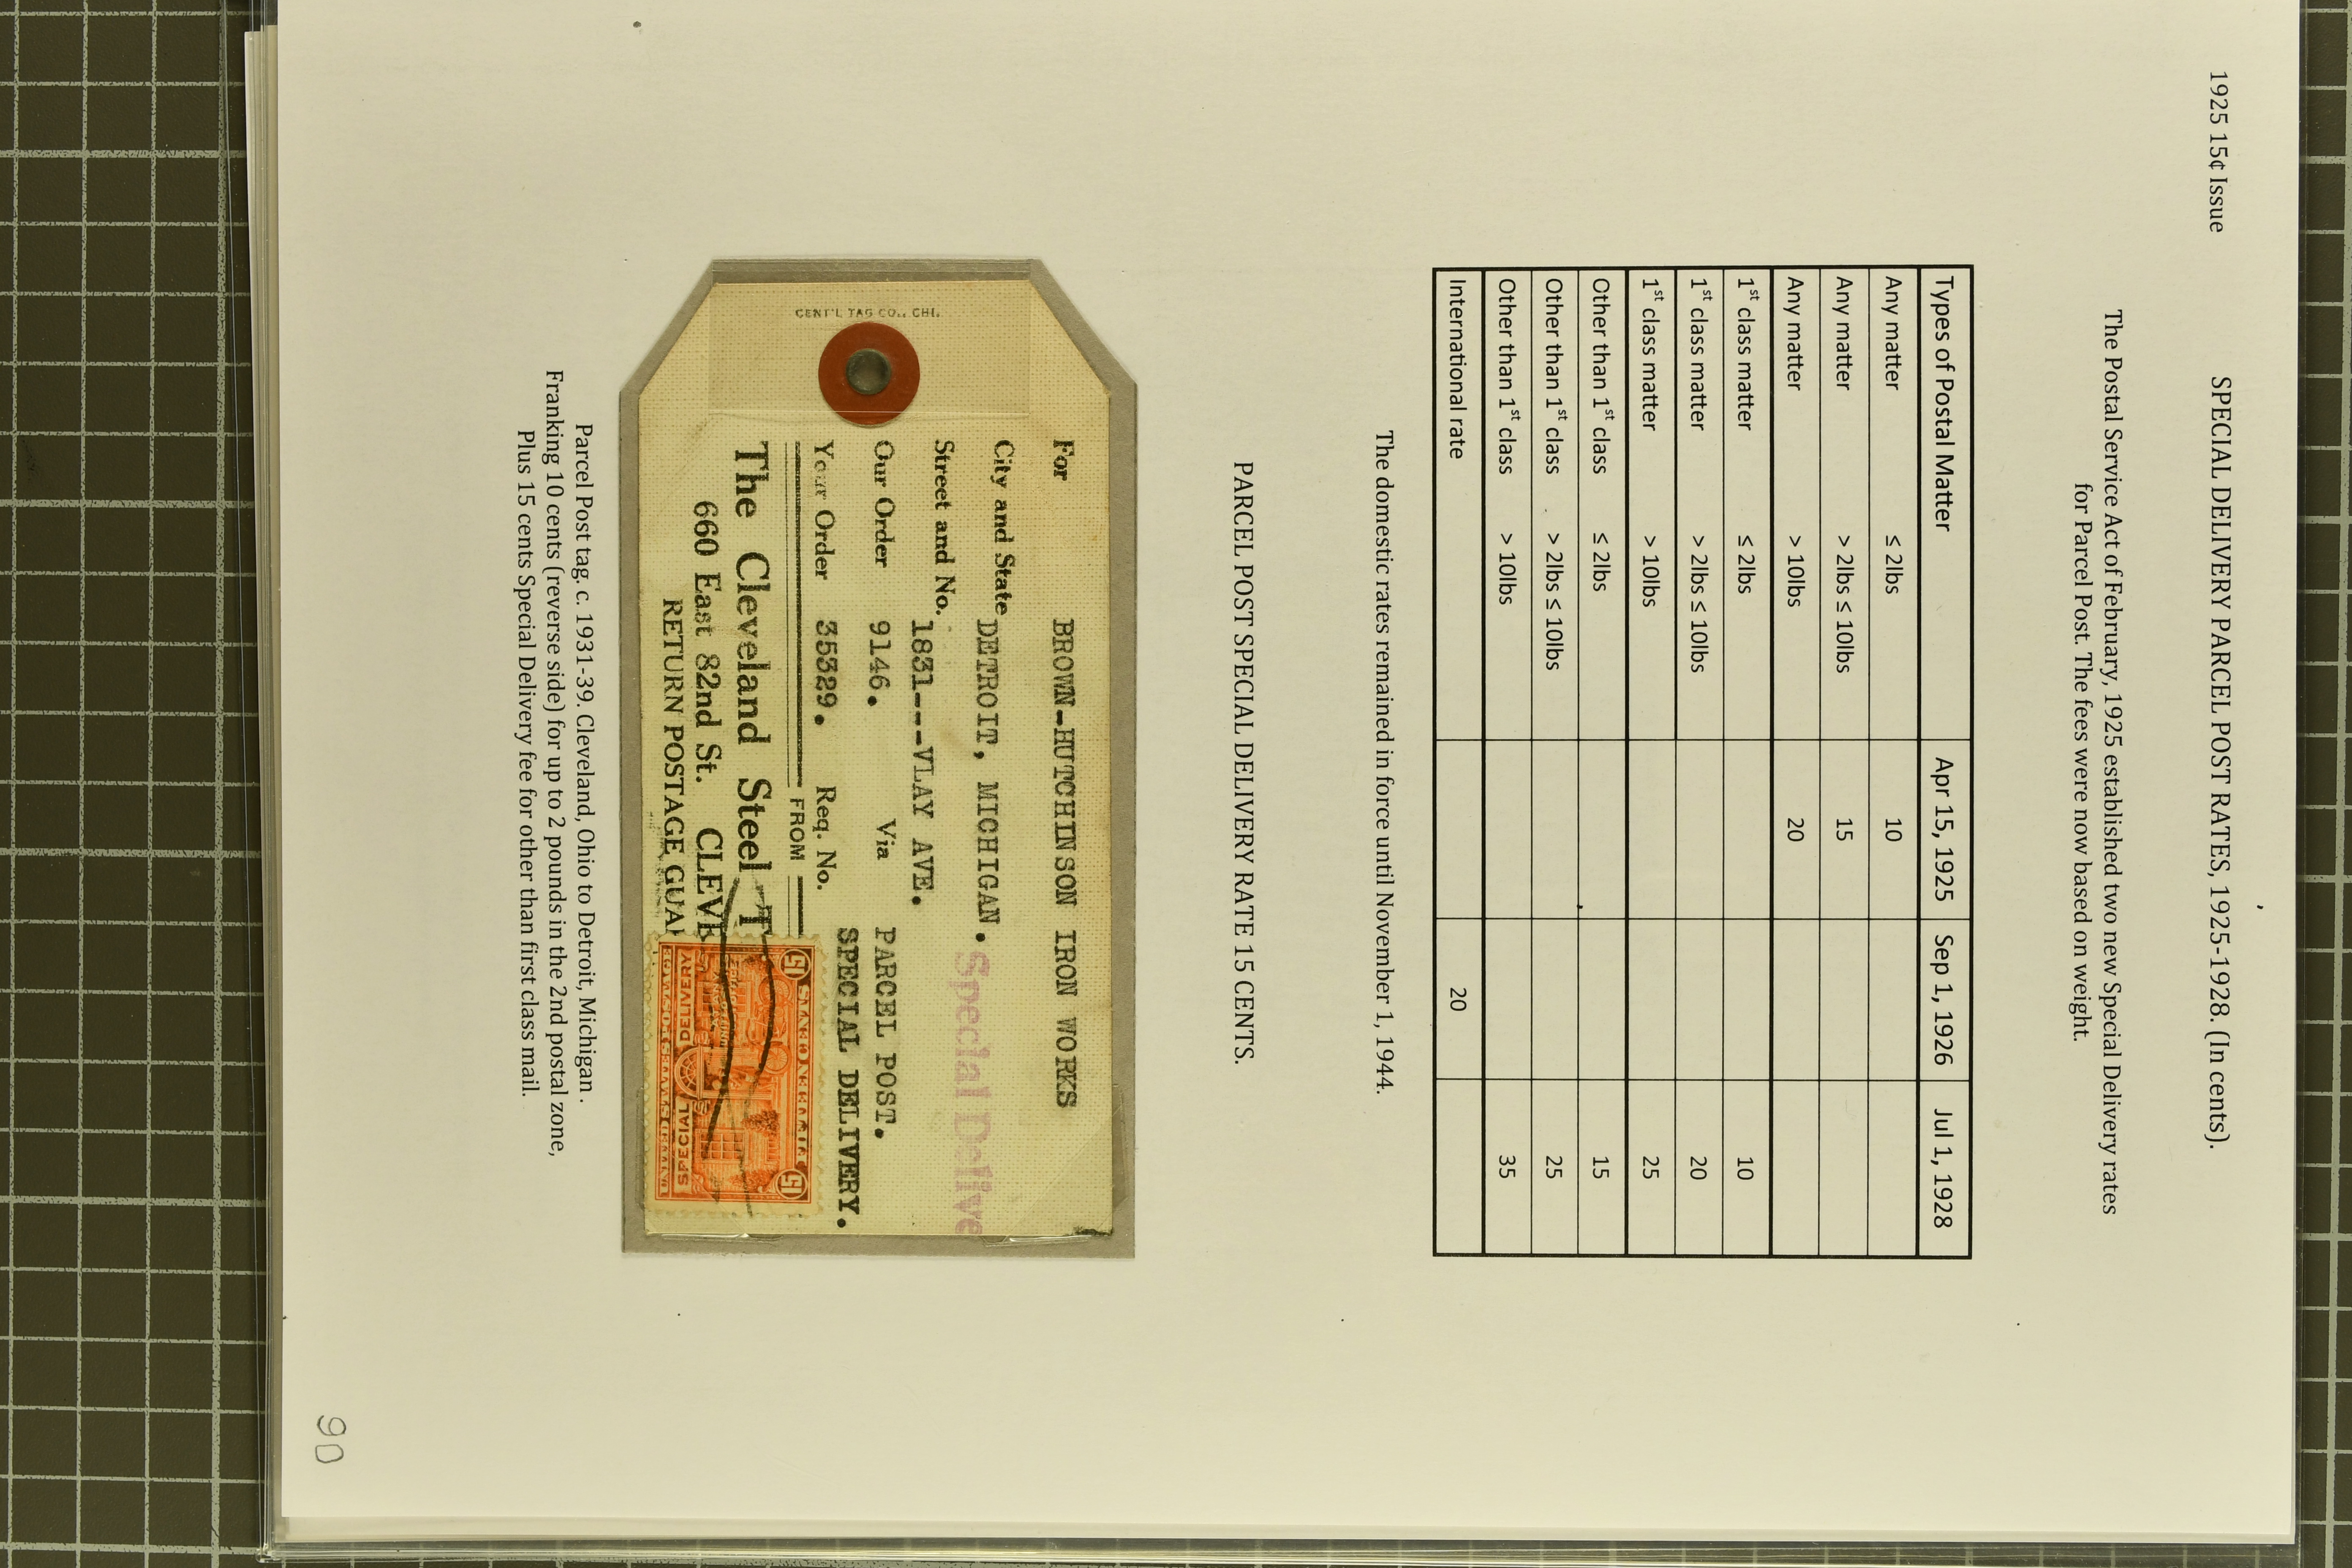 1925 15¢ Issue
SPECIAL DELIVERY PARCEL POST RATES, 1925-1928. (In cents).
The Postal Service Act of February, 1925 established two new Special Delivery rates
for Parcel Post. The fees were now based on weight.
Types of Postal Matter Apr 15, 1925 Sep 1, 1926 Jul 1, 1928
Any matter ≤ 2lbs 10
Any matter > 2lbs ≤ 10lbs 15
Any matter > 10lbs 20
1st class matter ≤ 2lbs 10
1st class matter > 2lbs ≤ 10lbs 20
1st class matter > 10lbs 25
Other than 1st class ≤ 2lbs 15
Other than 1st class > 2lbs ≤ 10lbs 25
Other than 1st class > 10lbs 35
International rate 20
The domestic rates remained in force until November 1, 1944.
PARCEL POST SPECIAL DELIVERY RATE 15 CENTS.
CENT'L TAG CO., CHI.
For BROWN-HUTCHINSON IRON WORKS
City and State DETROIT, MICHIGAN.
Special Delive
Street and No. 1831---VLAY AVE.
Our Order 9146. Via PARCEL POST.
SPECIAL DELIVERY.
Your Order 35329. Req. No.
FROM
The Cleveland Steel T
660 East 82nd St. CLEVE
RETURN POSTAGE GUA
15 15
SPECIAL DELIVERY
Parcel Post tag. c. 1931-39. Cleveland, Ohio to Detroit, Michigan .
Franking 10 cents (reverse side) for up to 2 pounds in the 2nd postal zone,
Plus 15 cents Special Delivery fee for other than first class mail.
90